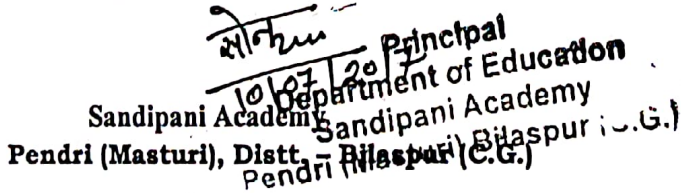 10/07/2017
Principal
Department of Education
Sandipani Academy
Pendri (Masturi) Bilaspur (C.G.)
Sandipani Academy
Pendri (Masturi), Distt. – Bilaspur (C.G.)